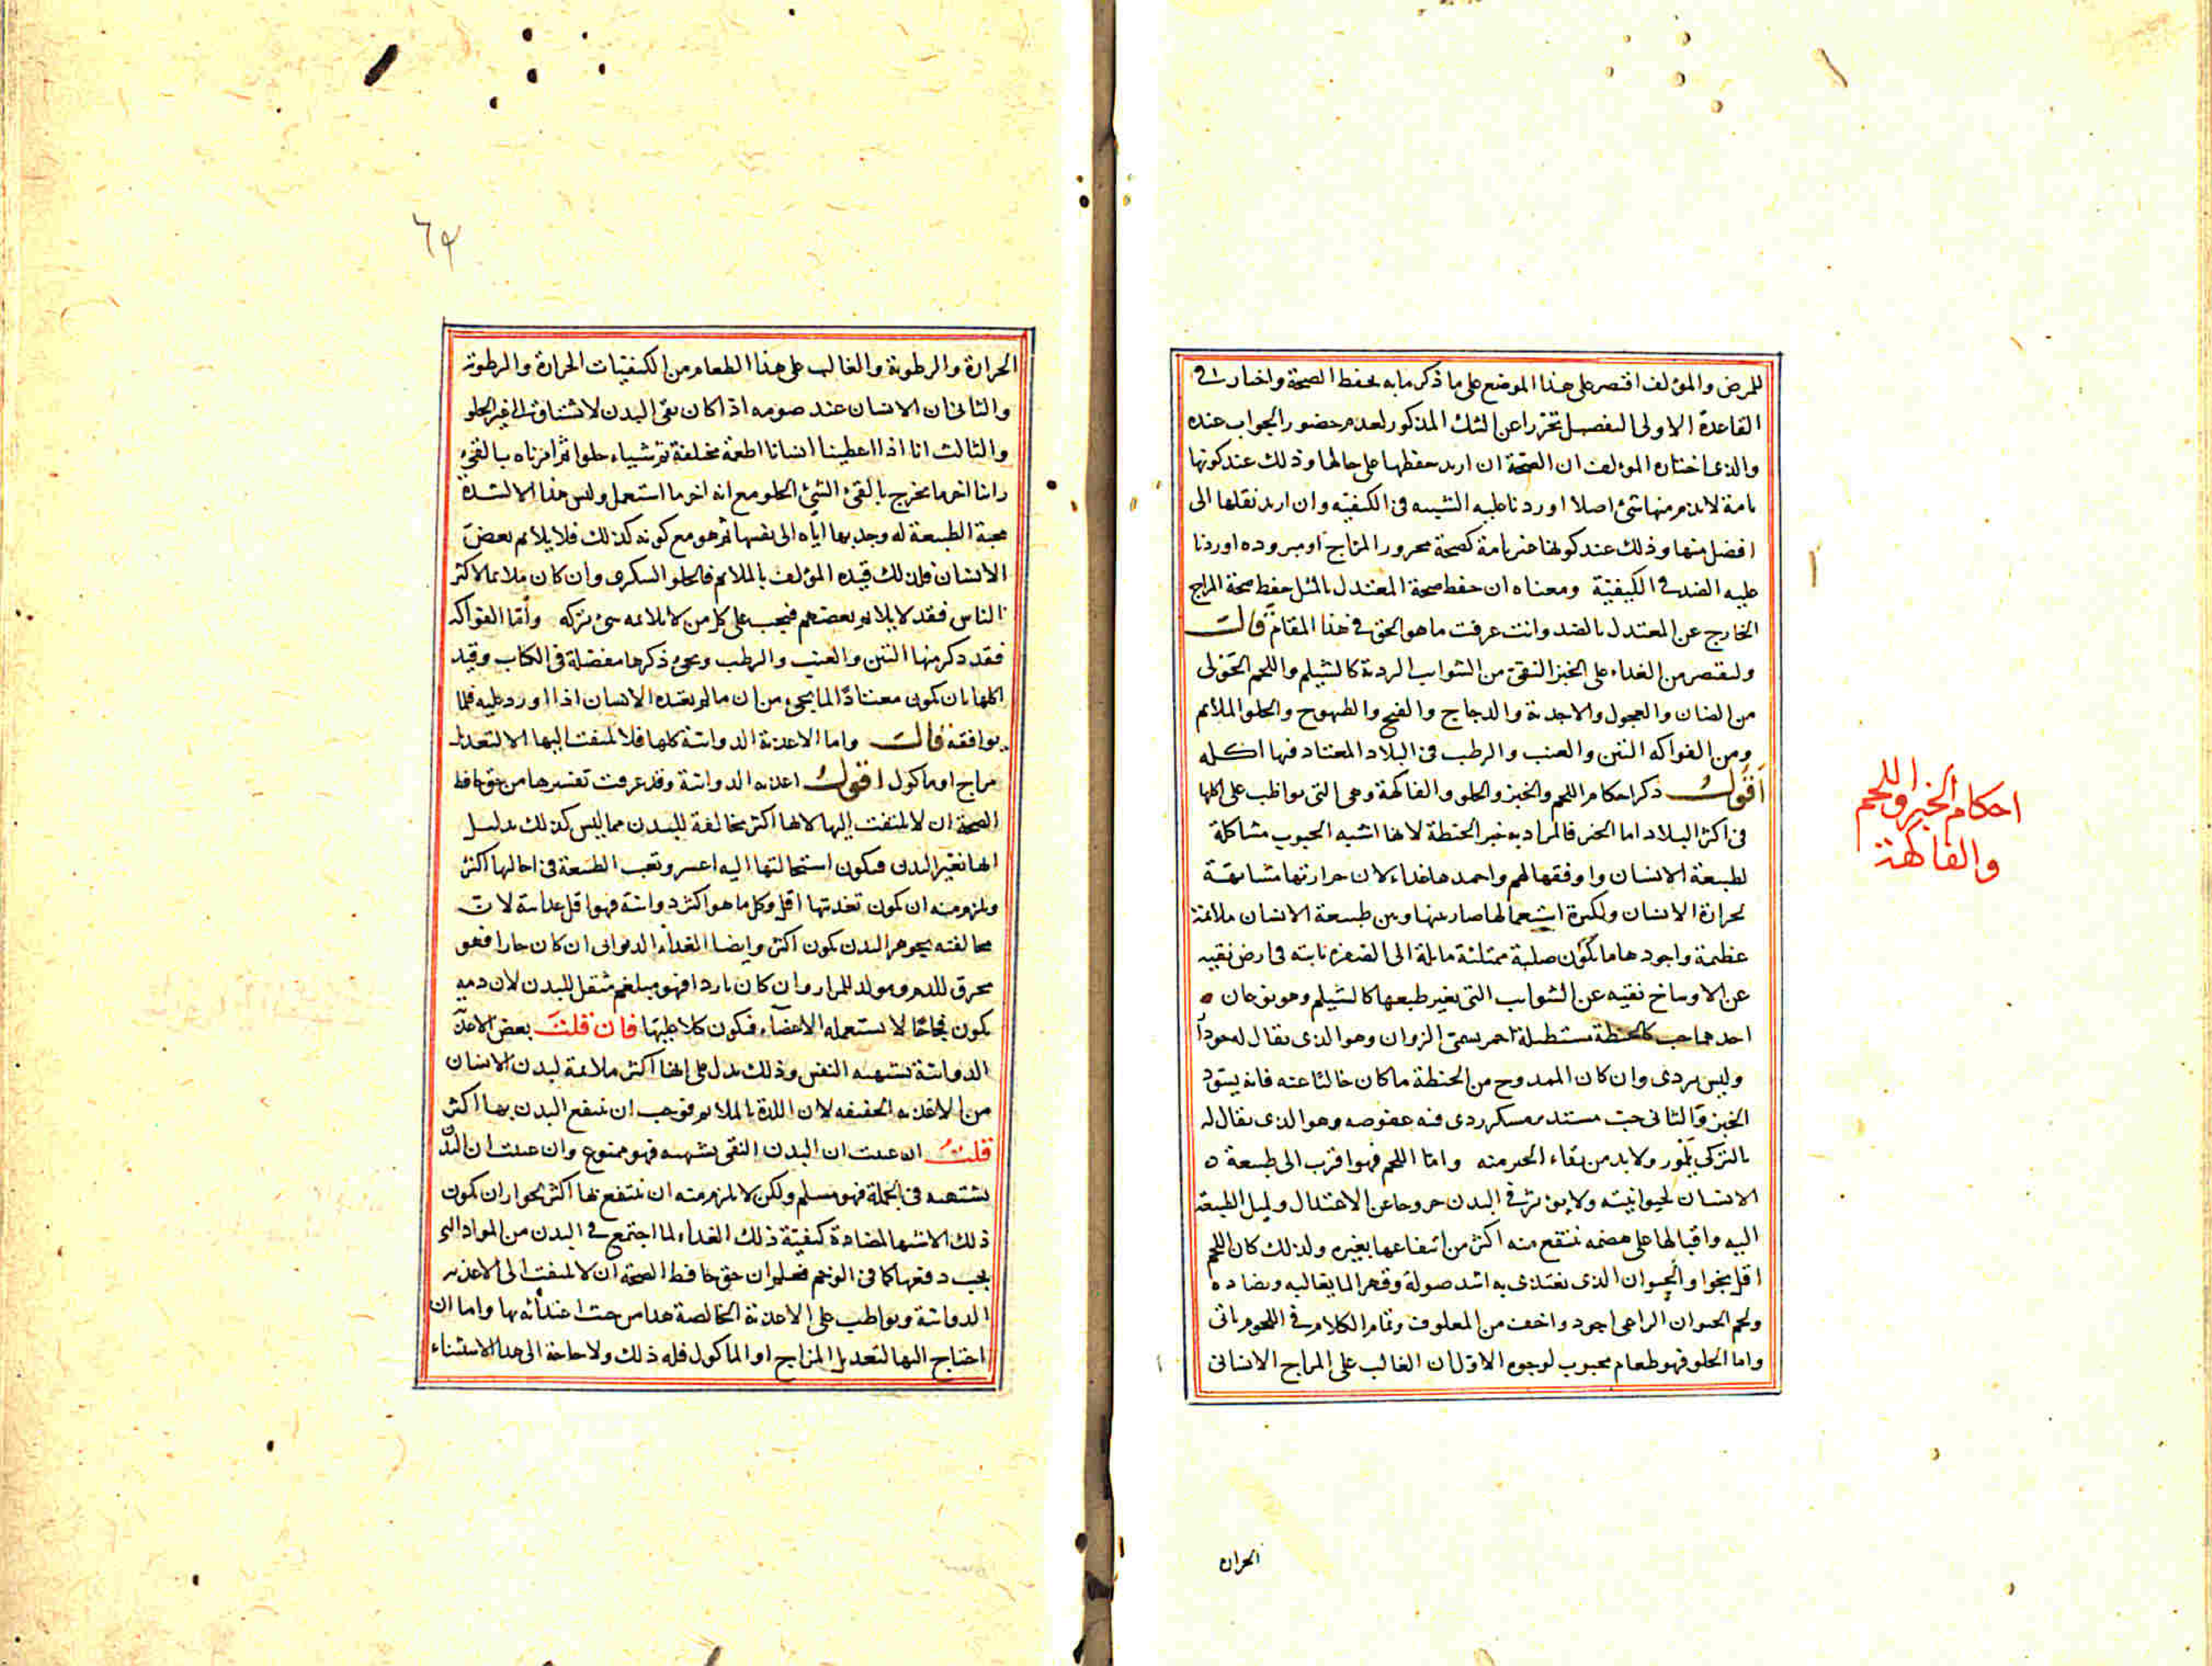 للمرض والمؤلف اقتصر على هذا الموضع على ما ذكر ما به يحفظ الصحة واختار في
القاعدة الاولى التفصيل تحرزا عن الشك المذكور لعدم حضور الجواب عنده
والذى اختاره المؤلف ان الصحة ان اريد حفظها على حالها وذلك عند كونها
تامة لا يذم منها شئ اصلا اوردنا عليه الشبيه فى الكيفيه وان اريد نقلها الى
افضل منها وذلك عند كونها غير تامة كصحة محرور المزاج او مبروده اوردنا
عليه الضد فى الكيفيّة ومعناه ان حفظ صحة المعتدل بالمثل حفظ صحة المزاج
الخارج عن المعتدل بالضد وانت عرفت ما هو الحق فى هذا المقام قالت
وليقتصر من الغداء على الخبز النقى من الشوايب الردية كالشيلم واللحم الحولى
من الضان والعجول والاجدية والدجاج والقبج والطيهوج والحلو الملايم
ومن الفواكه التين والعنب والرطب فى البلاد المعتاد فيها اكله
اقول ذكر احكام اللحم والخبز والحلو والفاكهة وهى التى يواظب على اكلها
فى اكثر البلاد اما الخبز فالمراد به خبز الحنطة لانها اشبه الحبوب مشاكلة
لطبيعة الانسان واوفقها لهم واحمدها غداء لان حرارتها مشابهة
لحرارة الانسان ولكثرة استعمالها صار بينها وبين طبيعة الانسان ملائمة
عظيمة واجودها ما يكون صلبة ممتلئة مايلة الى الصفرة نابته فى ارض نقيه
عن الاوساخ نقيه عن الشوايب التى يغير طبعها كالشيلم وهو نوعان
احدهما حب كالحنطة مستطيلة احمر يسمى الزوان وهو الذى يقال له
وليس بردى وان كان الممدوح من الحنطة ما كان خاليا عنه فانه يسود
الخبز والثانى حب مستدير مسكر ردى فيه عفوصه وهو الذى يقال له
بالتركى ولا بد من نقاء الخبز منه واما اللحم فهو اقرب الى طبيعة
الانسان لحيوانيته ولا يؤثر فى البدن خروجا عن الاعتدال ولميل الطبيعة
اليه واقبالها على هضمه ننتفع منه اكثر من انتفاعها بغيره ولذلك كان اللحم
اقل نجوا والحيوان الذى يغتذى به اشد صولة وقهرا لما يغالبه ويضاده
ولحم الحيوان الراعى اجود واخف من المعلوف وتمام الكلام فى اللحوم ياتى
واما الحلو فهو طعام محبوب لوجوه الاول ان الغالب على المزاج الانسانى
الحراره
احكام الخبز واللحم
والفاكهة
الحرارة والرطوبة والغالب على هذا الطعام من الكيفيات الحرارة والرطوبة
والثانى ان الانسان عند صومه اذا كان نقى البدن لا تشتاق الى غير الحلو
والثالث انا اذا اعطينا انسانا اطعمة مختلفة ثم شياء حلوا ثم امرناه بالقئ
راينا اخر ما يخرج بالقئ الشئ الحلو مع انه اخر ما استعمل وليس هذا الا لشدة
محبة الطبيعة له وجذبها اياه الى نفسها ثم هو مع كونه كذلك فلا يلائم بعض
الانسان فلذلك قيده المؤلف بالملايم فالحلو السكرى وان كان ملايما لاكثر
الناس فقد لا يلائم بعضهم فيجب على كل من لا يلائمه شئ تركه وأمّا الفواكه
فقد ذكر منها التين والعنب والرطب ويجئ ذكرها مفصلة فى الكتاب وقيد
اكلها بان يكون معتادًا لما يجئ من ان ما لم يعتده الانسان اذا اورد عليه قلما
يوافقه قالت واما الاغذية الدوائية كلها فلا يلتفت اليها الا لتعديل
مزاج او ماكول اقول اغذيه الدوائية وقد عرفت تفسيرها من حق حافظ
الصحة ان لا يلتفت إليها لانها اكثر مخالفة للبدن مما ليس كذلك بدليل
انها تغير البدن فيكون استحالتها اليه اعسر وتعب الطبيعة فى احالها اكثر
ويلزم منه ان يكون تغذيتها اقل وكل ما هو اكثر دوائية فهو اقل غذائية لان
مخالفته بجوهر البدن يكون اكثر وايضا الغذاء الدوائى ان كان حارا فهو
محرق للدم ومولد للمرار وان كان باردا فهو مبلغم مثقل للبدن لان دمه
يكون فجا لا يستعمله الاعضاء فيكون كلا عليها فان قلت بعض الاغذية
الدوائية تشتهيه النفس وذلك يدل على انها اكثر ملائمة لبدن الانسان
من الاغذيه الحقيقه لان اللذة بالملايم فوجب ان ينتفع البدن بها اكثر
قلت ان عنيت ان البدن النقى يشتهيه فهو ممنوع وان عنيت ان البدن
يشتهيه فى الجملة فهو مسلم ولكن لا يلزم منه ان ينتفع بها اكثر لجواز ان يكون
ذلك الاشتهاء لمضادة كيفيّة ذلك الغداء لما اجتمع فى البدن من المواد التى
يجب دفعها كما فى الوخم فعلم ان حق حافظ الصحة ان لا يلتفت الى الاغذيه
الدوائية ويواظب على الاغذية الخالصة هذا من حيث اغتذائه بها واما ان
احتاج اليها لتعديل المزاج او الماكول فله ذلك ولا حاجة الى هذا الاستثناء